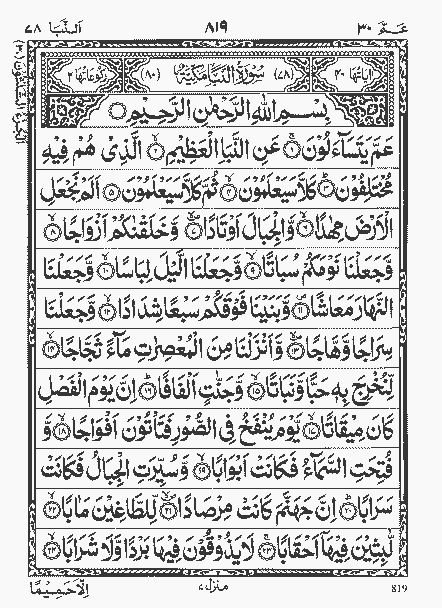 النبا ٧٨ ٨١٩ عم ٣٠
اياتها ٤٠ (٧٨) سُوْرَةُ النَّبَاِ مَكِّيَّةٌ (٨٠) ركوعاتها ٢
بِسْمِ اللّٰهِ الرَّحْمٰنِ الرَّحِيْمِ
عَمَّ يَتَسَآءَلُوْنَ ۚ‏﴿۱﴾ عَنِ النَّبَاِ الْعَظِيْمِۙ‏﴿۲﴾ الَّذِىْ هُمْ فِيْهِ
مُخْتَلِفُوْنَؕ‏﴿۳﴾ كَلَّا سَيَعْلَمُوْنَۙ‏﴿۴﴾ ثُمَّ كَلَّا سَيَعْلَمُوْنَ‏﴿۵﴾ اَلَمْ نَجْعَلِ
الْاَرْضَ مِهٰدًاۙ‏﴿۶﴾ وَّالْجِبَالَ اَوْتَادًاۙ‏﴿۷﴾ وَّخَلَقْنٰكُمْ اَزْوَاجًاۙ‏﴿۸﴾
وَّجَعَلْنَا نَوْمَكُمْ سُبَاتًاۙ‏﴿۹﴾ وَّجَعَلْنَا الَّيْلَ لِبَاسًاۙ‏﴿۱۰﴾ وَّجَعَلْنَا
النَّهَارَ مَعَاشًا‏﴿۱۱﴾ وَّبَنَيْنَا فَوْقَكُمْ سَبْعًا شِدَادًاۙ‏﴿۱۲﴾ وَّجَعَلْنَا
سِرَاجًا وَّهَّاجًاۙ‏﴿۱۳﴾ وَّاَنْزَلْنَا مِنَ الْمُعْصِرٰتِ مَآءً ثَجَّاجًاۙ‏﴿۱۴﴾
لِّنُخْرِجَ بِهٖ حَبًّا وَّنَبَاتًاۙ‏﴿۱۵﴾ وَّجَنّٰتٍ اَلْفَافًاؕ‏﴿۱۶﴾ اِنَّ يَوْمَ الْفَصْلِ
كَانَ مِيْقَاتًاۙ‏﴿۱۷﴾ يَّوْمَ يُنْفَخُ فِى الصُّوْرِ فَتَاْتُوْنَ اَفْوَاجًاۙ‏﴿۱۸﴾ وَّ
فُتِحَتِ السَّمَآءُ فَكَانَتْ اَبْوَابًاۙ‏﴿۱۹﴾ وَّسُيِّرَتِ الْجِبَالُ فَكَانَتْ
سَرَابًاؕ‏﴿۲۰﴾ اِنَّ جَهَنَّمَ كَانَتْ مِرْصَادًاۙ‏﴿۲۱﴾ لِّلطَّاغِيْنَ مَاٰبًاۙ‏﴿۲۲﴾
لّٰبِثِيْنَ فِيْهَاۤ اَحْقَابًاۚ‏﴿۲۳﴾ لَا يَذُوْقُوْنَ فِيْهَا بَرْدًا وَّلَا شَرَابًاۙ‏﴿۲۴﴾
اِلَّا حَمِيْمًا منزل٧ 819